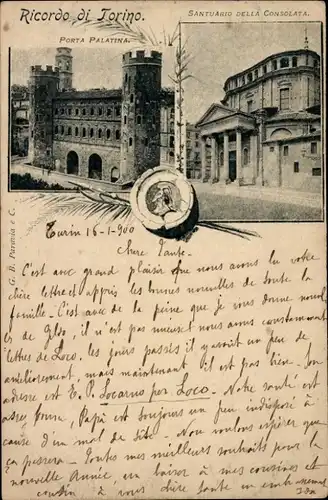 Ricordo di Torino.
PORTA PALATINA.
SANTUARIO DELLA CONSOLATA.
G. B. Paravia e C.
Turin 16-1-900
Chère Tante.
C'est avec grand plaisir que nous avons lu votre
chère lettre et appris les bonnes nouvelles de toute la
famille. C'est avec de la peine que je vous donne nouvel-
les de Gildo, il n'est pas mieux et nous avons constamment
lettres de Loco. les jours passés il y avait un peu de
amélioremert, mais maintenant il est pas bien. Son
adresse est E. P. Locarno per Loco. Notre santé est
assez bonne, Papà est toujours un peu indisposé à
cause d'un mal de tête. Nous voulons espérer que
ça passera. Toutes mes meilleurs souhaits pour la
nouvelle Année, un baiser à mes cousines et
cousin à vous chère tante un embrassement